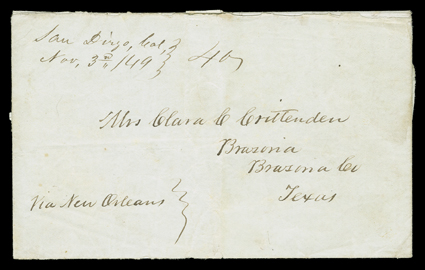 San Diego, Cal,
Nov, 3rd /49
40
Mrs Clara C Crittenden
Brazoria
Brazoria Co
Texas
Via New Orleans